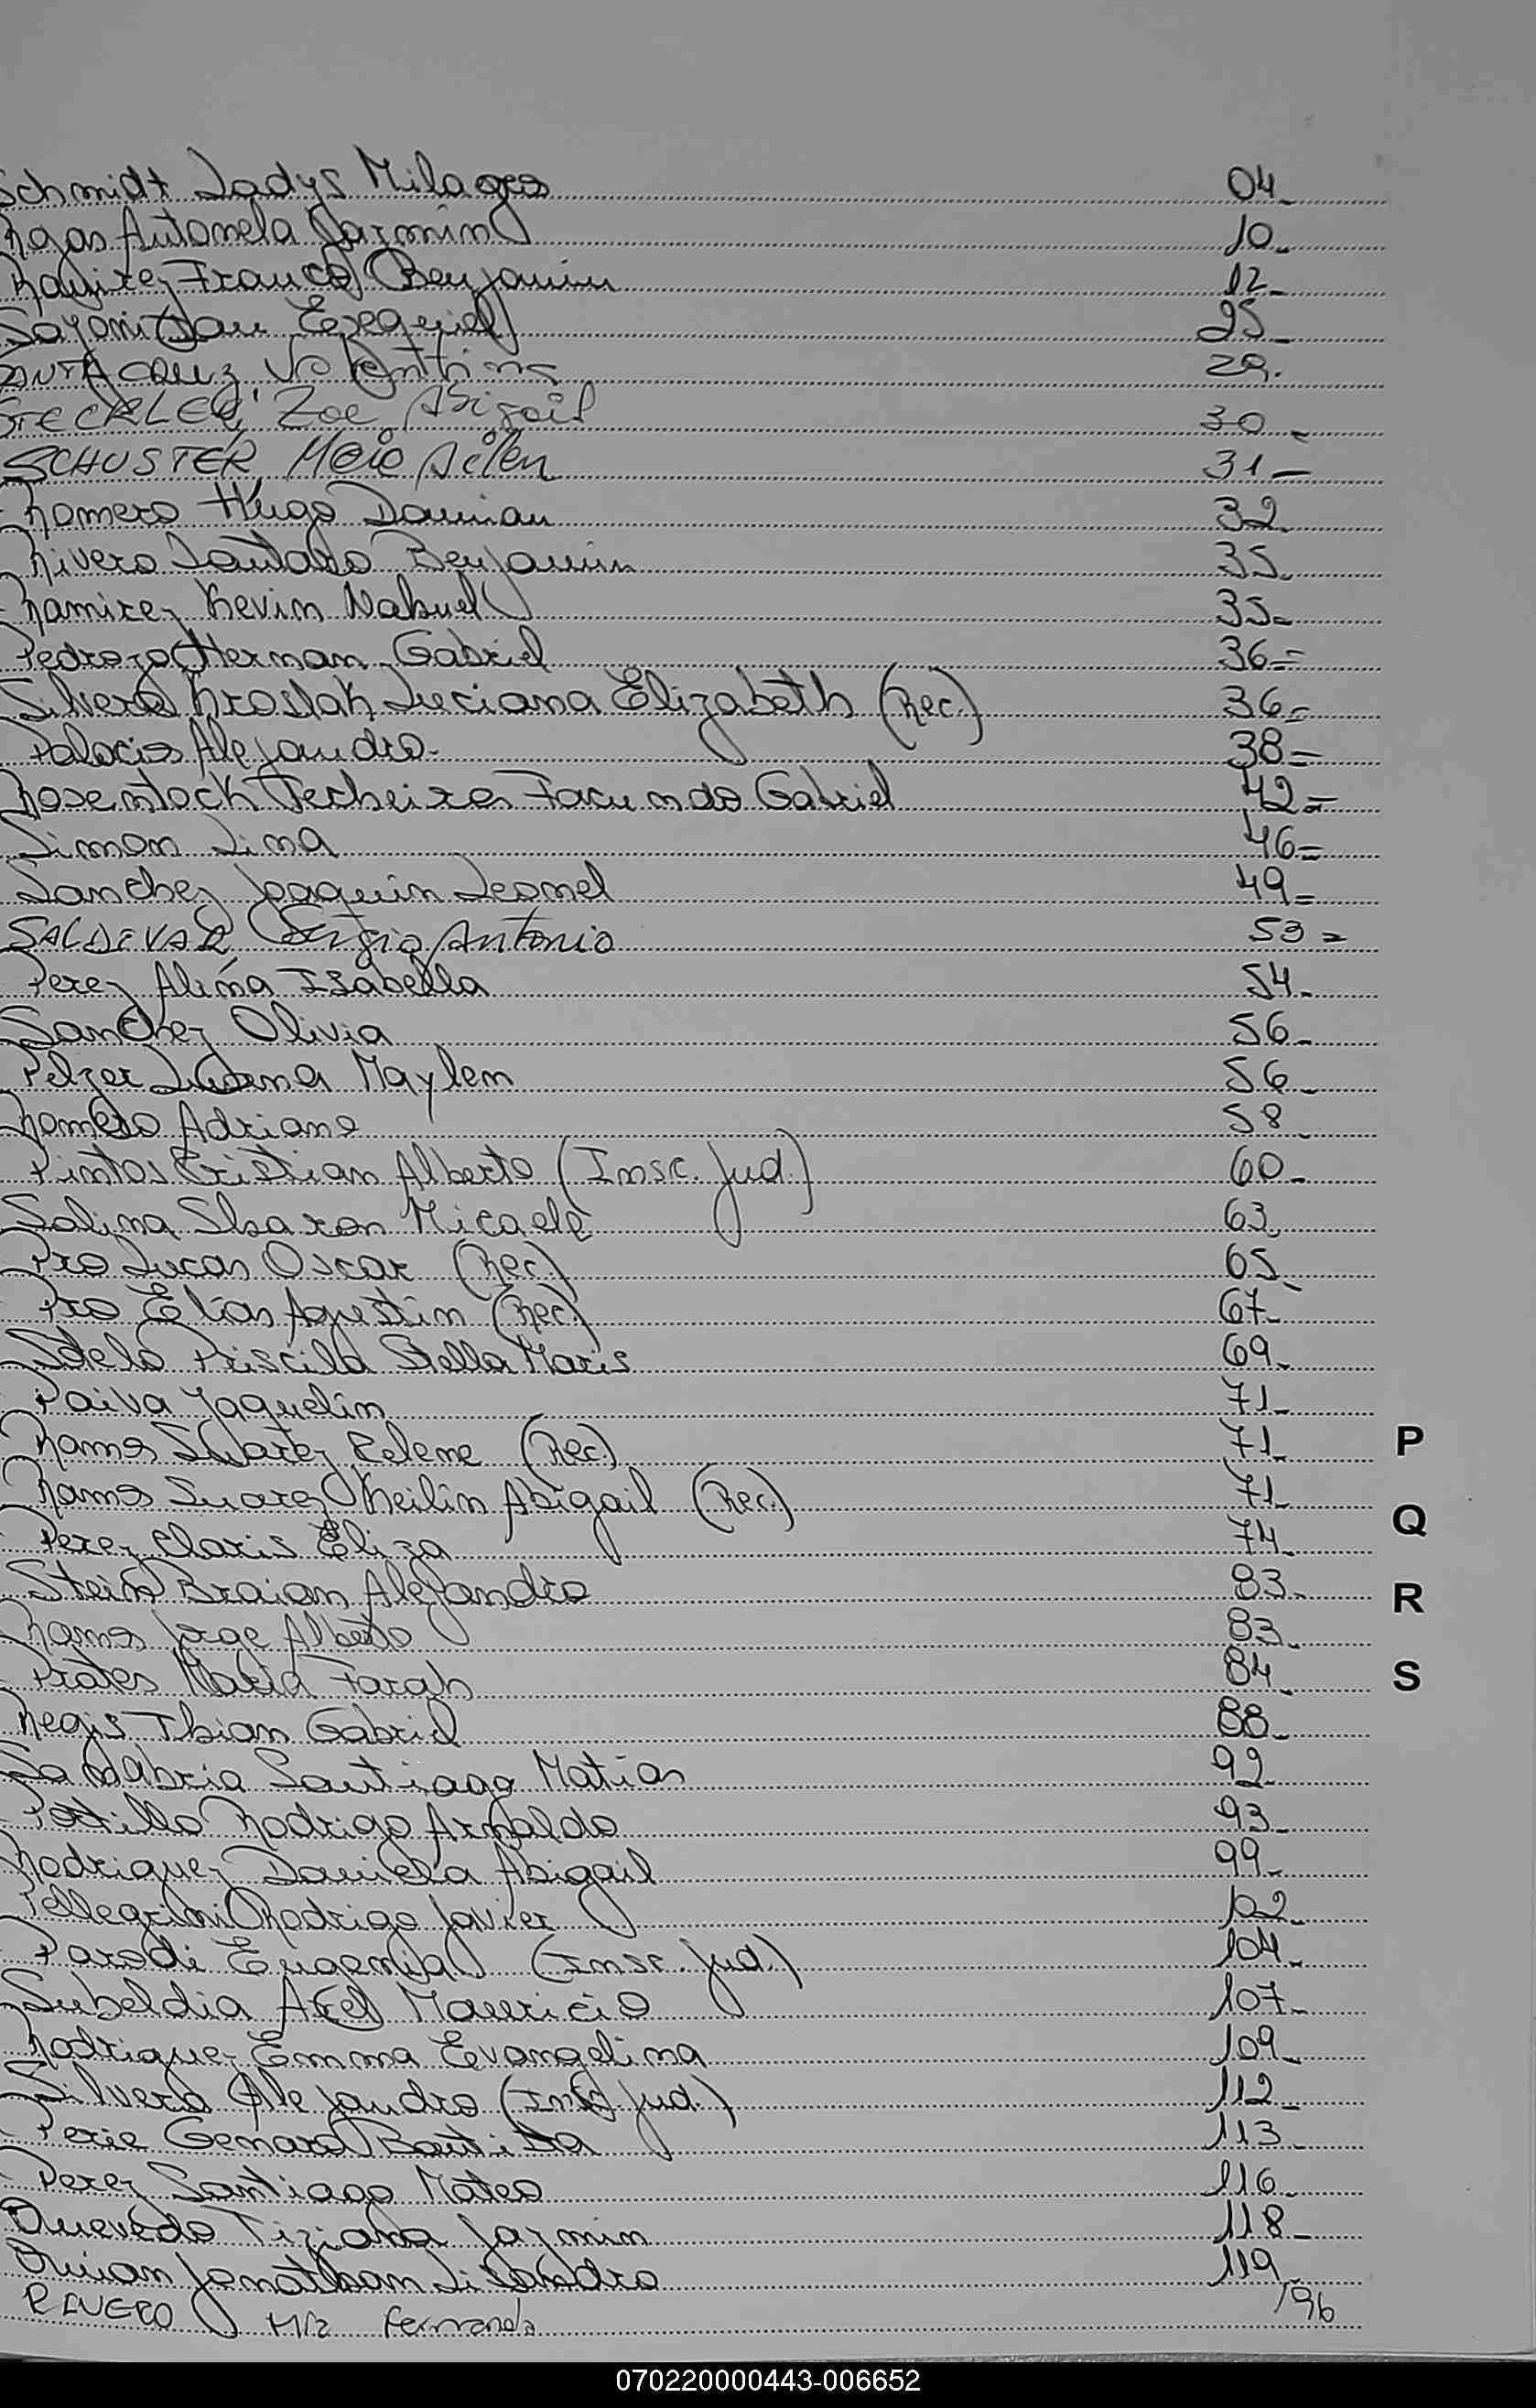 Schmidt Ladys Milagros 04_
Rojas Antonela Jazmin 10_
Ramirez Franco Benjamin 12_
Ezequiel 25_
SANTA CRUZ Valentina 29.
STECKLER, Zoe Abigail 30_
SCHUSTER Maia Ailen 31_
Romero Hugo Damian 32_
Rivero Lautaro Benjamin 35_
Ramirez Kevin Nahuel 35_
Pedrozo Hernan Gabriel 36=
Silvera Kroslak Luciana Elizabeth (Rec.) 36=
Palacios Alejandro. 38=
Rosenstock Techeira Facundo Gabriel 42=
Simon Lina 46=
Sanchez Joaquin Leonel 49=
SALDIVAR, Sergio Antonio 53=
Perez Alina Isabella 54_
Sanchez Olivia 56_
Pelzer Luana Maylen 56_
Romero Adriana 58_
Pintos Cristian Alberto (Insc. Jud.) 60_
Salina Sharon Micaela 63_
Pro Lucas Oscar (Rec.) 65_
Pro Elías Agustin (Rec.) 67_
Sotelo Priscila Stella Maris 69_
Paiva Yaquelin 71_
Ramos Suarez Selene (Rec.) 71_
P
Ramos Suarez Keilin Abigail (Rec.) 71_
Q
Perez Claris Eliza 74_
Stein Braian Alejandro 83_
R
Ramos Jorge Alberto 83_
Prates Maria Farah 84_
S
Regis Thian Gabriel 88_
Sanabria Santiago Matias 92_
Portillo Rodrigo Arnaldo 93_
Rodriguez Daniela Abigail 99_
Pellegrini Rodrigo Javier 102_
Parodi Eugenia (Insc. Jud.) 104_
Subeldia Axel Mauricio 107_
Rodriguez Emma Evangelina 109_
Silvero Alejandro (Insc. Jud.) 112_
Perie Genaro Bautista 113_
Perez Santiago Mateo 116_
Quevedo Tiziana Jazmin 118_
Jonathan Lisandro 119_
RIVERO Mía Fernanda 196
070220000443-006652